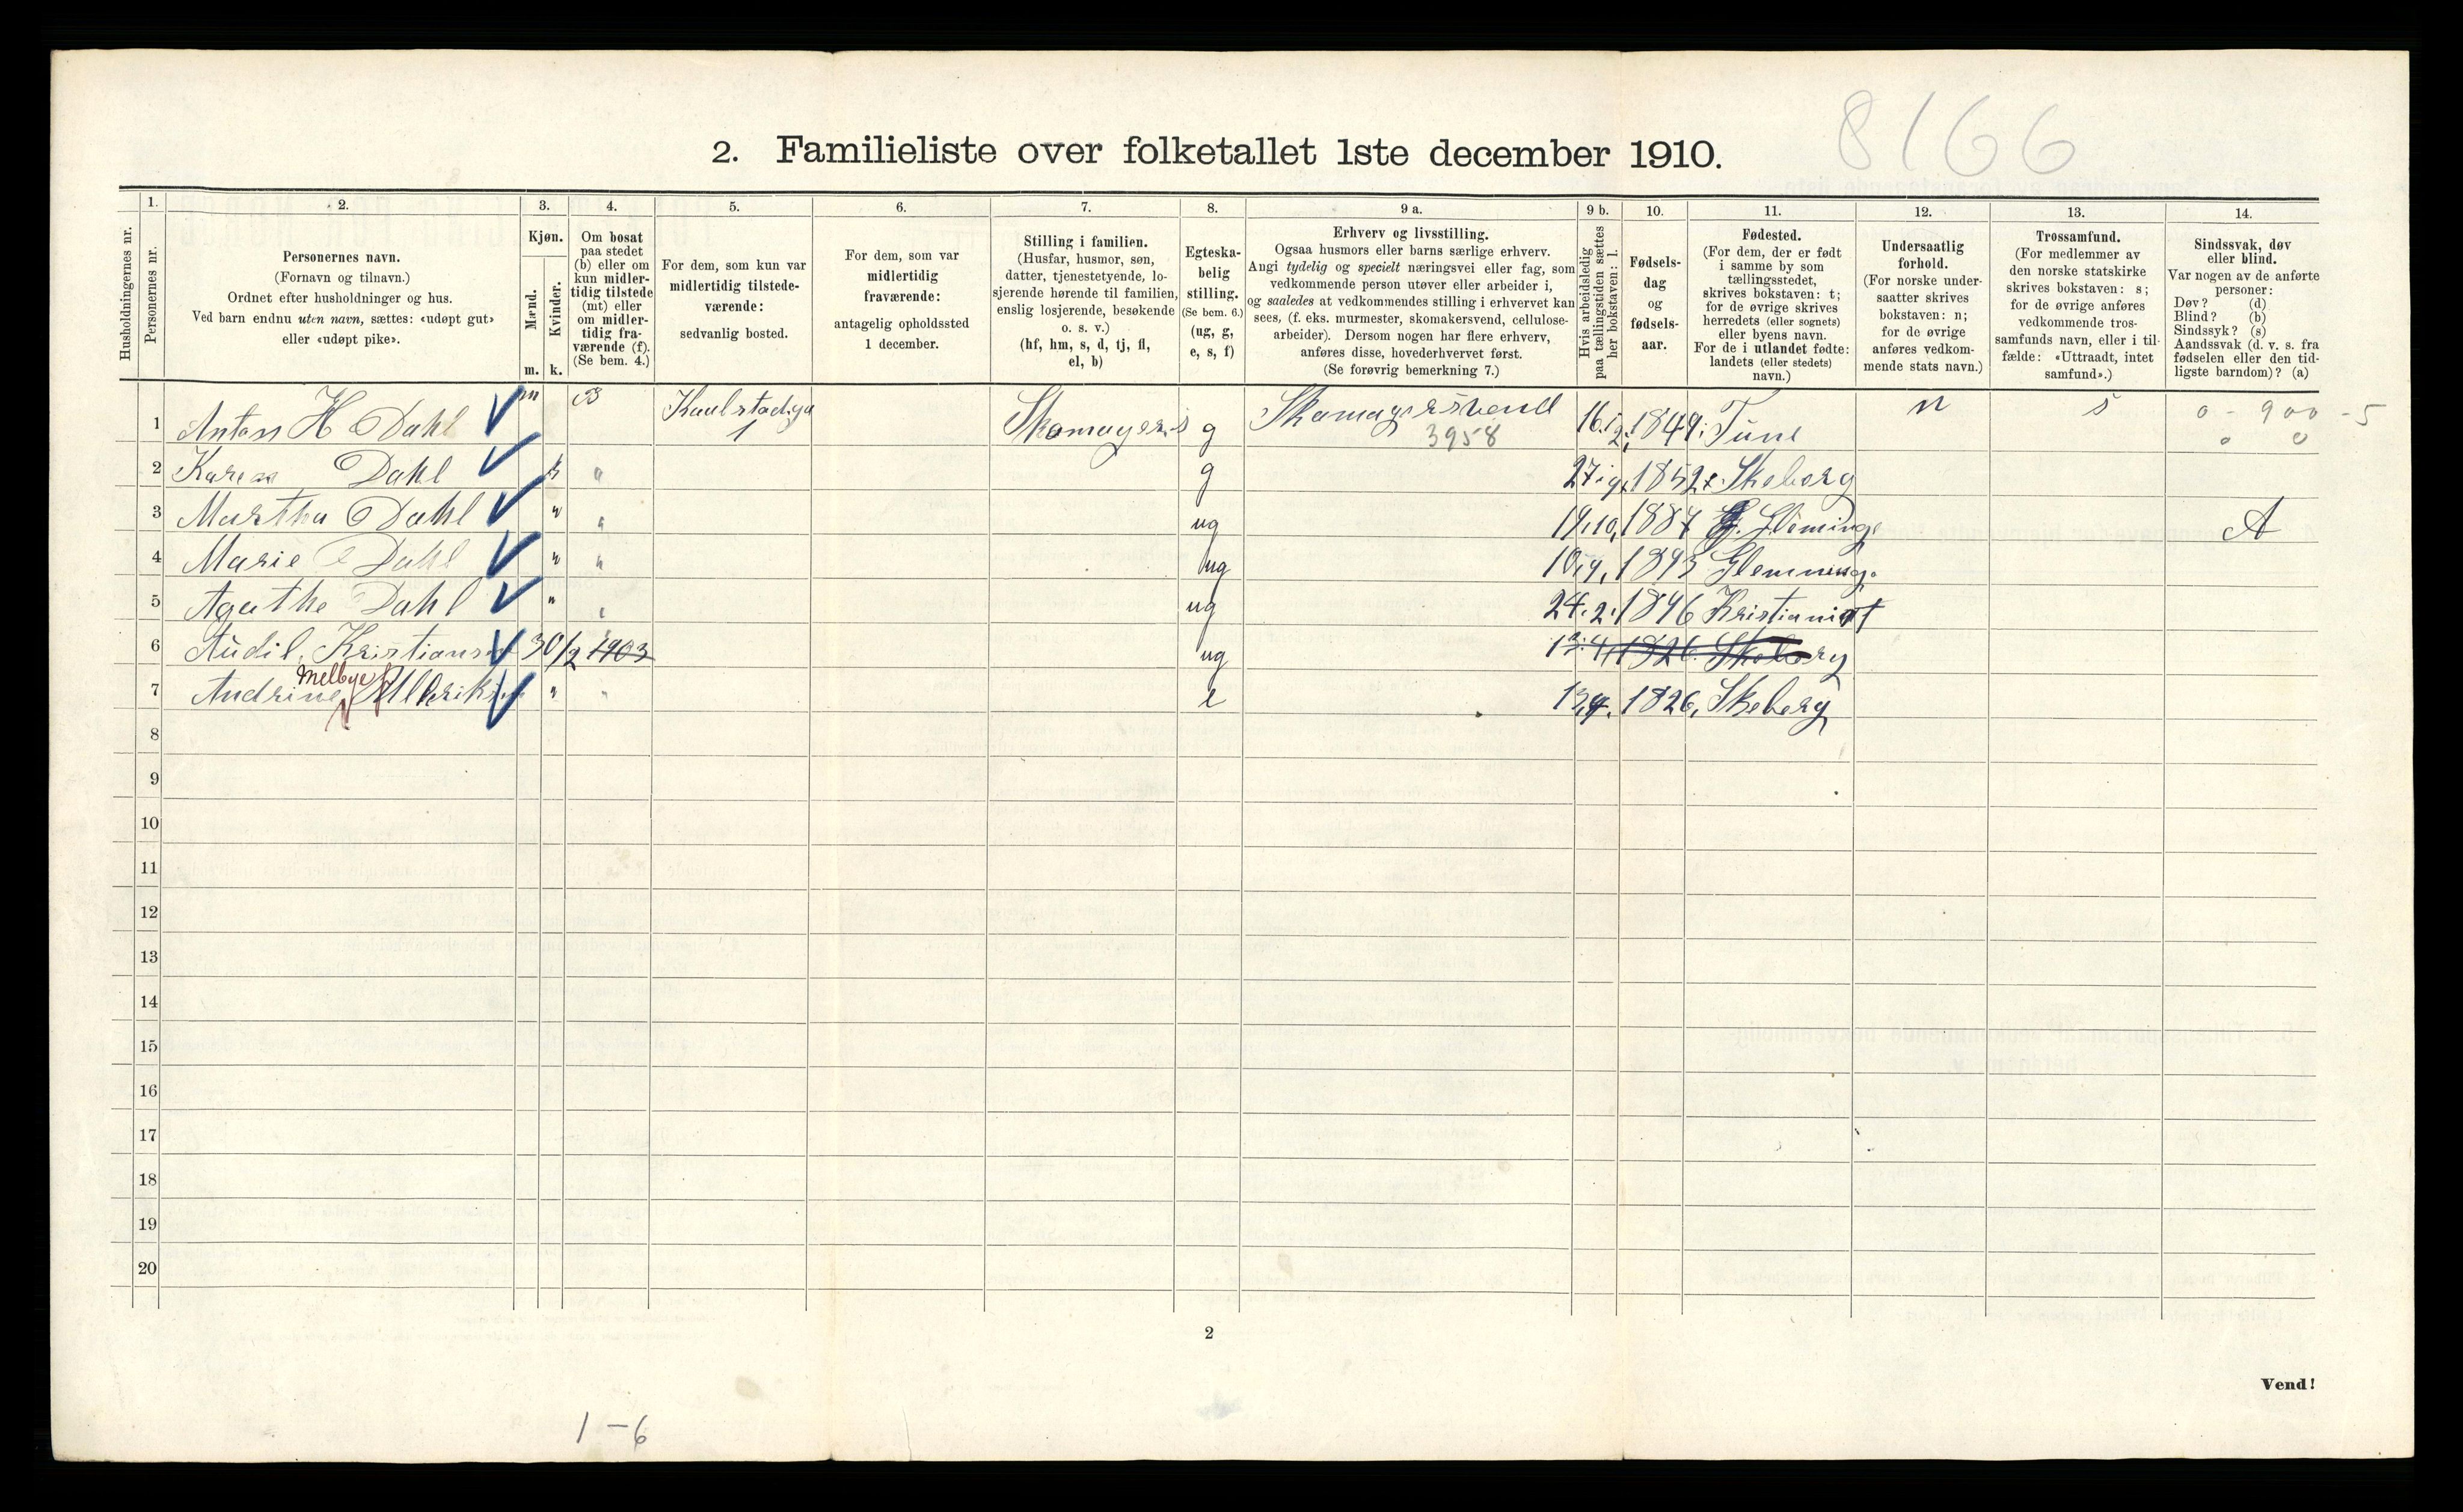 8166
2. Familieliste over folketallet 1ste december 1910.
Husholdningernes nr.
1. Personernes nr.
2. Personernes navn. (Fornavn og tilnavn.) Ordnet efter husholdninger og hus. Ved barn endnu uten navn, sættes: «udøpt gut» eller «udøpt pike».
3. Kjøn. Mænd. m. Kvinder. k.
4. Om bosat paa stedet (b) eller om kun midlertidig tilstede (mt) eller om midlertidig fraværende (f). (Se bem. 4.)
5. For dem, som kun var midlertidig tilstedeværende: sedvanlig bosted.
6. For dem, som var midlertidig fraværende: antagelig opholdssted 1 december.
7. Stilling i familien. (Husfar, husmor, søn, datter, tjenestetyende, losjerende hørende til familien, enslig losjerende, besøkende o. s. v.) (hf, hm, s, d, tj, fl, el, b)
8. Egteskabelig stilling. (Se bem. 6.) (ug, g, e, s, f)
9 a. Erhverv og livsstilling. Ogsaa husmors eller barns særlige erhverv. Angi tydelig og specielt næringsvei eller fag, som vedkommende person utøver eller arbeider i, og saaledes at vedkommendes stilling i erhvervet kan sees, (f. eks. murmester, skomakersvend, cellulosearbeider). Dersom nogen har flere erhverv, anføres disse, hovederhvervet først. (Se forøvrig bemerkning 7.)
9 b. Hvis arbeidsledig paa tællingstiden sættes her bokstaven: l.
10. Fødselsdag og fødselsaar.
11. Fødested. (For dem, der er født i samme by som tællingsstedet, skrives bokstaven: t; for de øvrige skrives herredets (eller sognets) eller byens navn. For de i utlandet fødte: landets (eller stedets) navn.)
12. Undersaatlig forhold. (For norske undersaatter skrives bokstaven: n; for de øvrige anføres vedkommende stats navn.)
13. Trossamfund. (For medlemmer av den norske statskirke skrives bokstaven: s; for de øvrige anføres vedkommende trossamfunds navn, eller i tilfælde: «Uttraadt, intet samfund».)
14. Sindssvak, døv eller blind. Var nogen av de anførte personer: Døv? (d) Blind? (b) Sindssyk? (s) Aandssvak (d. v. s. fra fødselen eller den tidligste barndom)? (a)
1 Anton H Dahl m B 1 g 3958 16. 2. 1849. Tune n s 0 - 900 - 5
0 0
2 Karen Dahl k " g 27. 9. 1852 Skeberg
3 Martha Dahl " " ug 19. 10. 1887 Gleminge A
4 Marie Dahl " " ug 10. 9. 1893 Glemminge
5 Agathe Dahl " " ug 24. 2. 1896 Kristiania t
6 Audil Kristiansen 30/2 1903 ug 13. 4. 1826 Skeberg
7 Andrine Melbye Ullriksen " " e 13. 4. 1826, Skeberg
8
9
10
11
12
13
14
15
16
17
18
19
20
2
Vend!
1-6